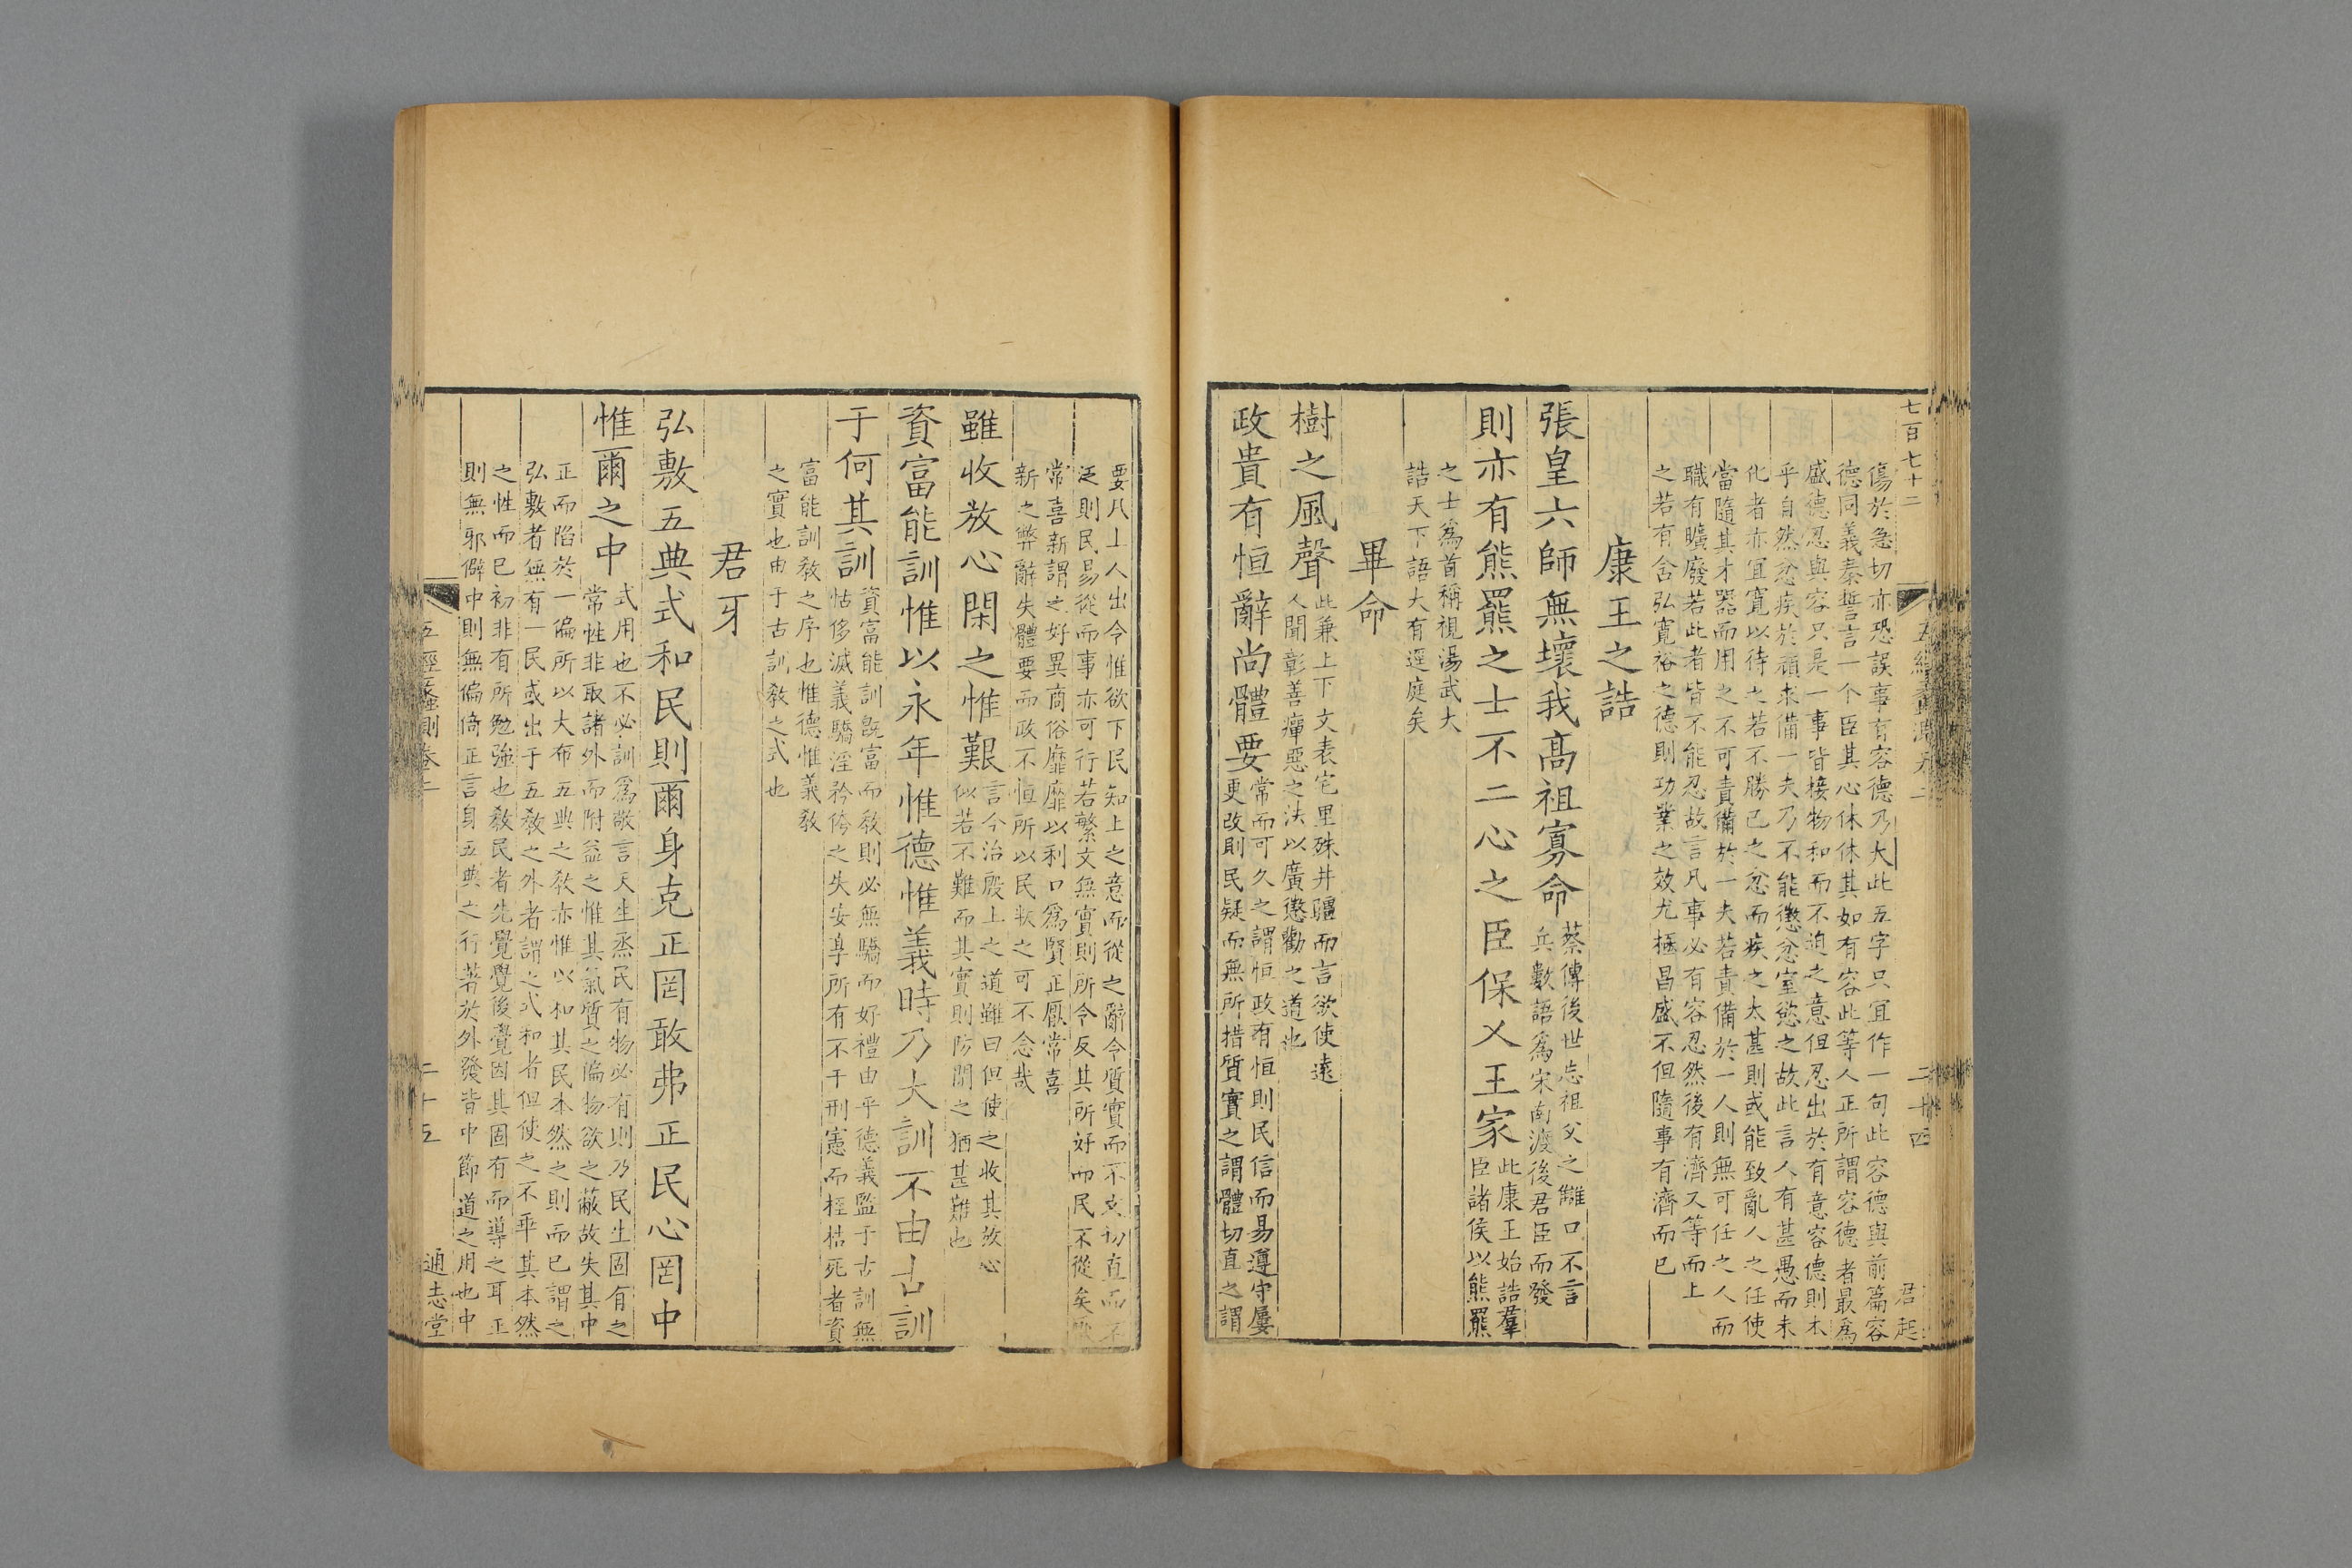 七百七十二
傷於急切亦恐誤事有容德乃大此五字只宜作一句此容德與前篇容
德同義秦誓言一个臣其心休休其如有容此等人正所謂容德者最為
盛德忍與容只是一事皆接物和而不迫之意但忍出於有意容德則本
乎自然忿疾於頑求備一夫乃不能懲忿窒慾之故此言人有甚愚而未
化者亦宜寬以待之若不勝己之忿而疾之太甚則或能致亂人之任使
當隨其才器而用之不可責備於一夫若責備於一人則無可任之人而
職有曠廢若此者皆不能忍故言凡事必有容忍然後有濟又等而上
之若有舍弘寬裕之德則功業之效尤極昌盛不但隨事有濟而已
康王之誥
張皇六師無壞我高祖寡命
蔡傳後世忘祖父之讎口不言
兵數語為宋南渡後君臣而發
則亦有熊羆之士不二心之臣保乂王家
此康王始誥羣
臣諸侯以熊羆
之士爲首稱視湯武大
誥天下語大有逕庭矣
畢命
樹之風聲
此兼上下文表宅里殊井疆而言欲使遠
人聞彰善癉惡之法以廣懲勸之道也
政貴有恒辭尚體要
常而可久之謂恒政有恒則民信而易遵守屢
更改則民疑而無所措質實之謂體切直之謂
二十四
君起
要凡上人出令惟欲下民知上之意而從之辭令質實而不支切直而不
泛則民易從而事亦可行若繁文無實則所令反其所好而民不從矣
常喜新謂之好異商俗靡靡以利口爲賢正厭常喜
新之弊辭失體要而政不恒所以民狃之可不念哉
雖收放心閑之惟艱
言今治殷上之道雖曰但使之收其放心
似若不難而其實則防閑之猶甚難也
資富能訓惟以永年惟德惟義時乃大訓不由古訓
于何其訓
資富能訓旣富而敎則必無驕而好禮由乎德義監于古訓無
怙侈滅義驕淫矜侉之失安享所有不干刑憲而桎梏死者資
富能訓敎之序也惟德惟義敎
之實也由于古訓敎之式也
君牙
弘敷五典式和民則爾身克正罔敢弗正民心罔中
惟爾之中
式用也不必訓爲敬言天生烝民有物必有則乃民生固有之
常性非取諸外而附益之惟其氣質之偏物欲之蔽故失其中
正而陷於一偏所以大布五典之敎亦惟以和其民本然之則而已謂之
弘敷者無有一民或出于五敎之外者謂之式和者但使之不乖其本然
之性而已初非有所勉強也敎民者先覺覺後覺因其固有而導之耳正
則無邪僻中則無偏倚正言身五典之行著於外發皆中節道之用也中
五經蠡測卷二
二十五
通志堂